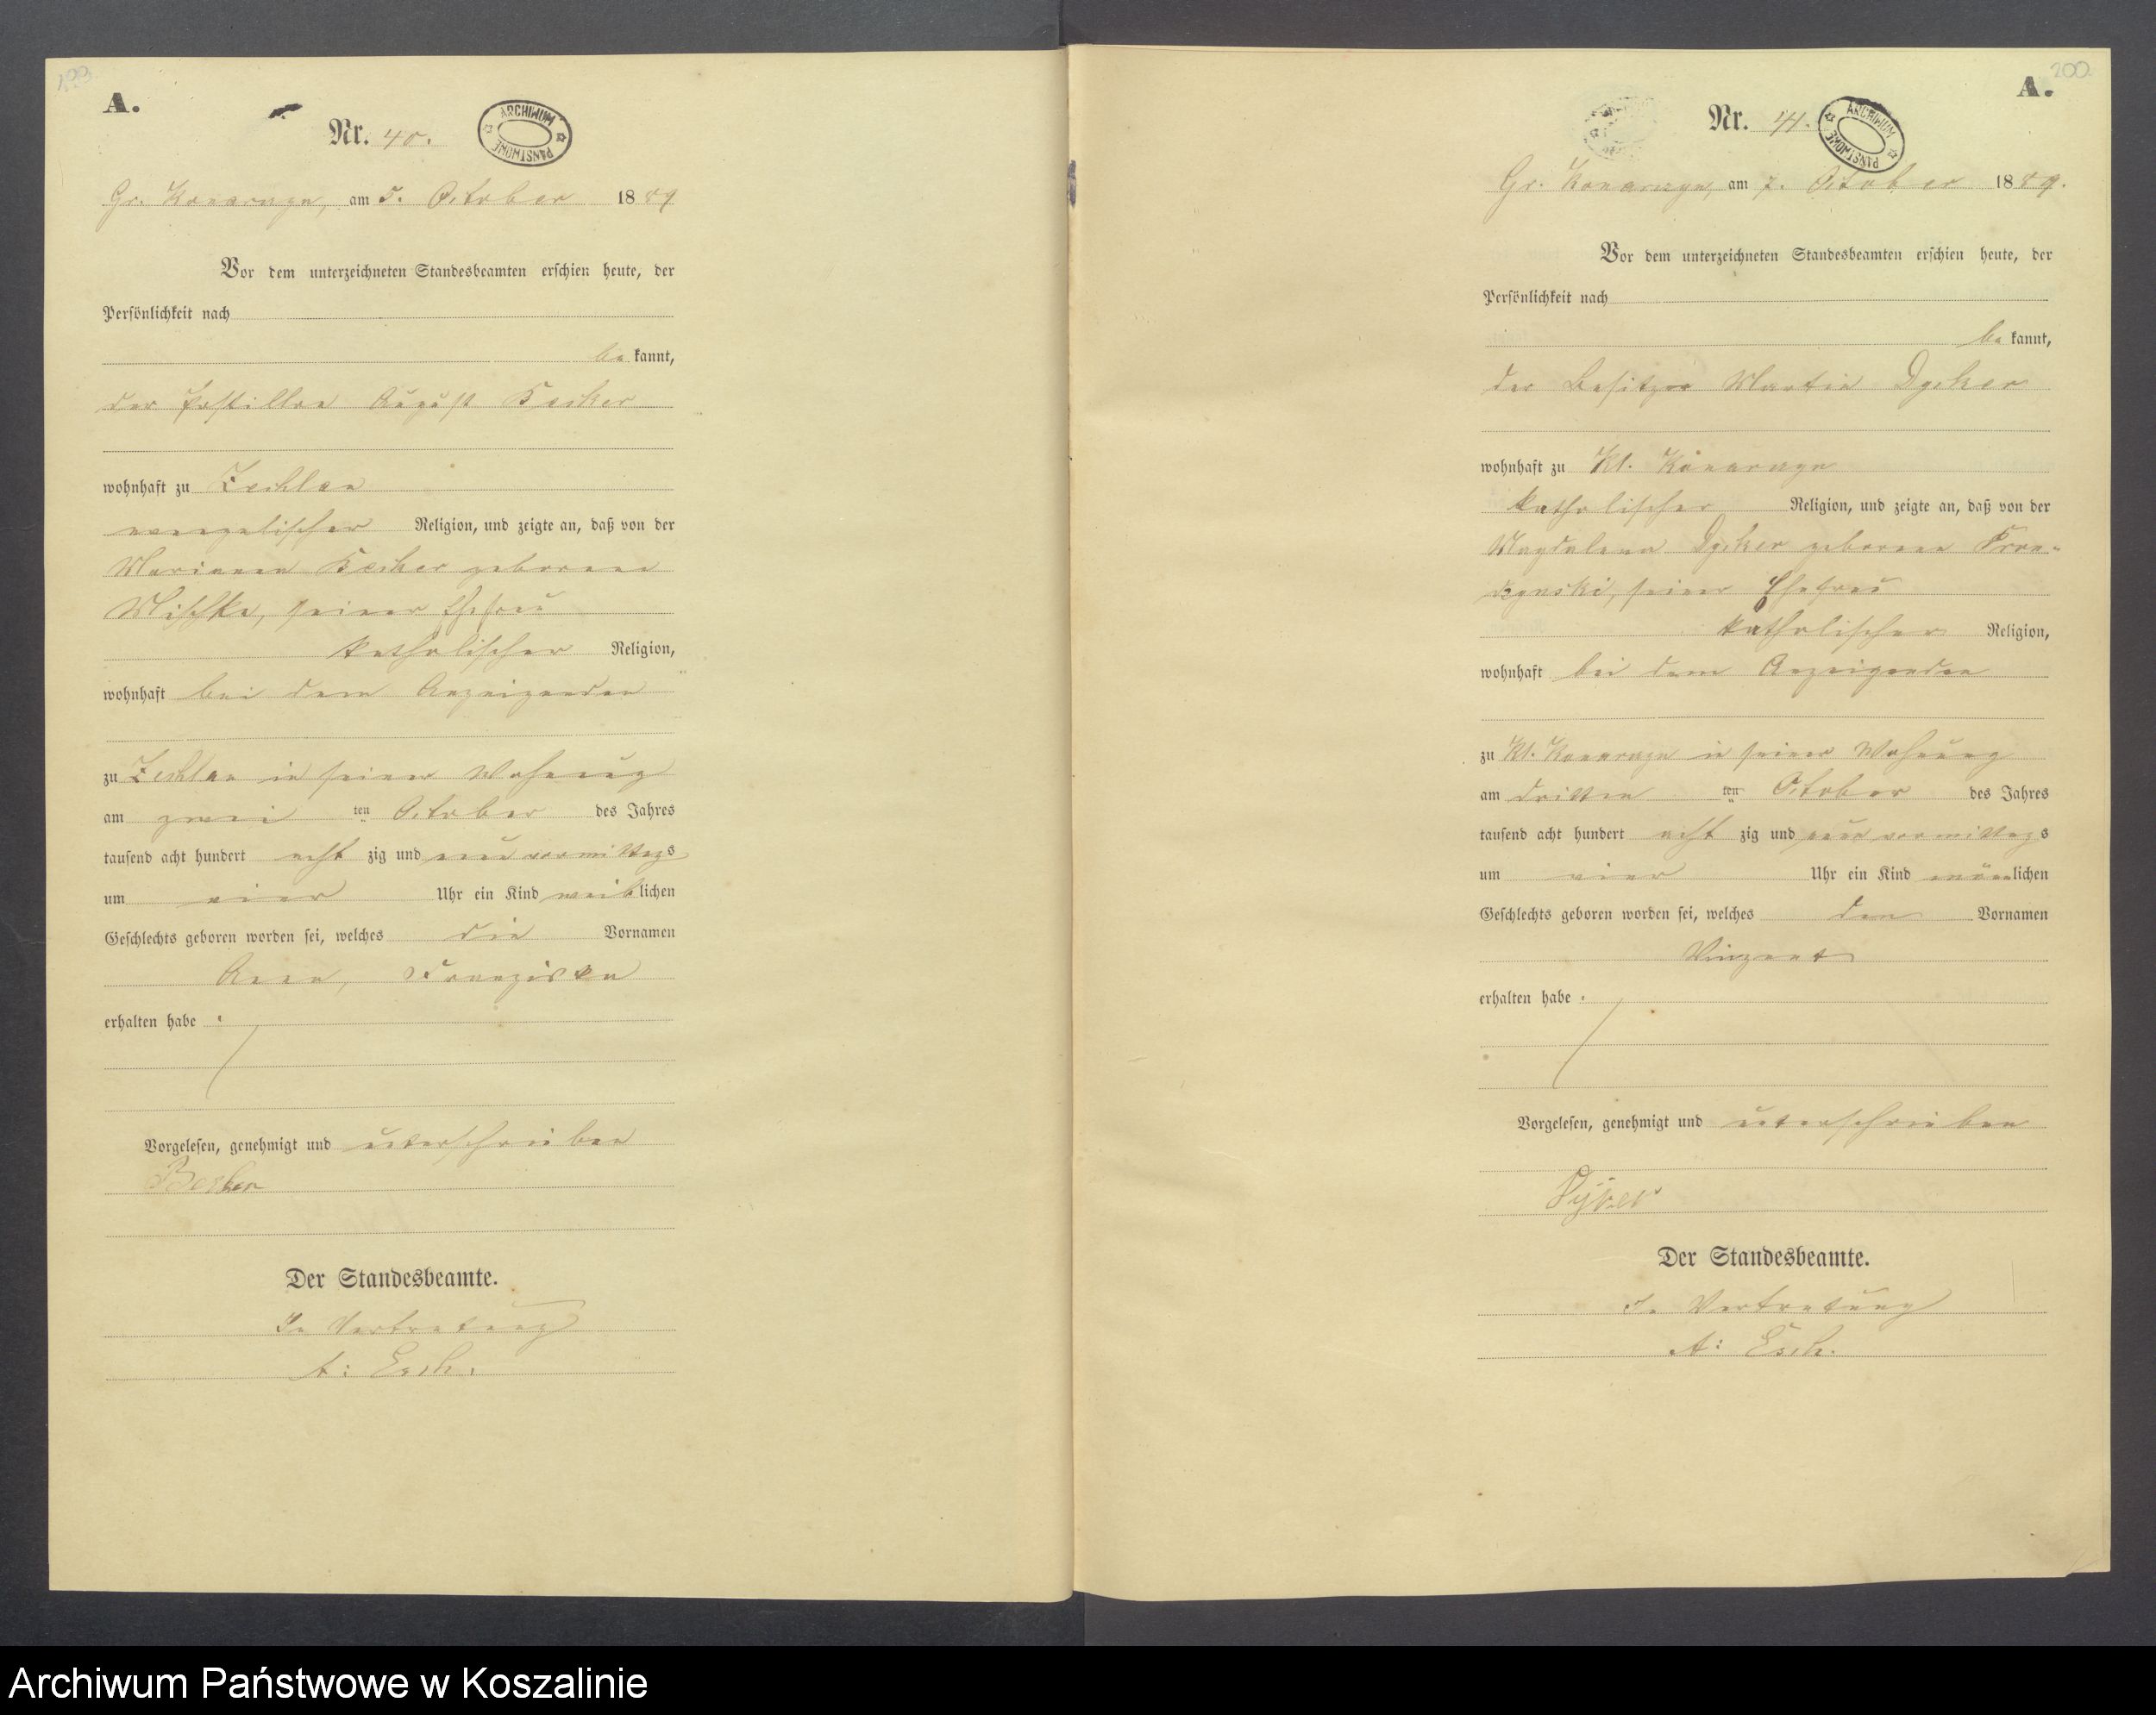 199
A.
Nr. 40.
ARCHIWUM PAŃSTWOWE
Gr. Konarczyn, am 5. October 1889
Vor dem unterzeichneten Standesbeamten erschien heute, der
Persönlichkeit nach
bekannt,
der Postillon August Becker
wohnhaft zu Zechlau
evangelischer Religion, und zeigte an, daß von der
Marianna Becker geborene
Mischke, seiner Ehefrau
katholischer Religion,
wohnhaft bei dem Anzeigenden
zu Zechlau in seiner Wohnung
am zwei ten October des Jahres
tausend acht hundert acht zig und neun vormittags
um vier Uhr ein Kind weiblichen
Geschlechts geboren worden sei, welches die Vornamen
Anna, Franziska
erhalten habe.
Vorgelesen, genehmigt und unterschrieben
Becker
Der Standesbeamte.
In Vertretung
A: Esch.
200
A.
Nr. 41.
ARCHIWUM PAŃSTWOWE
Gr. Konarczyn, am 7. October 1889.
Vor dem unterzeichneten Standesbeamten erschien heute, der
Persönlichkeit nach
bekannt,
der Besitzer Martin Dyker
wohnhaft zu Kl. Konarczyn
katholischer Religion, und zeigte an, daß von der
Magdalena Dyker geborene
seiner Ehefrau
katholischer Religion,
wohnhaft bei dem Anzeigenden
zu Kl. Konarczyn in seiner Wohnung
am dritten ten October des Jahres
tausend acht hundert acht zig und neun vormittags
um vier Uhr ein Kind männlichen
Geschlechts geboren worden sei, welches den Vornamen
Vinzent
erhalten habe.
Vorgelesen, genehmigt und unterschrieben
Dyker
Der Standesbeamte.
In Vertretung
A: Esch.
Archiwum Państwowe w Koszalinie